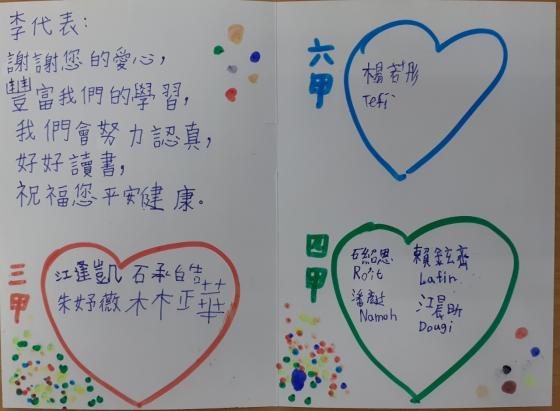 李代表：
謝謝您的愛心，
豐富我們的學習，
我們會努力認真，
好好讀書，
祝福您平安健康。
三甲
江逢凱 石承皓
朱妤薇 林正華
六甲
楊若彤
Tefi
四甲
賴鉉齊
Lafin
Namoh
江晨昕
Dougi